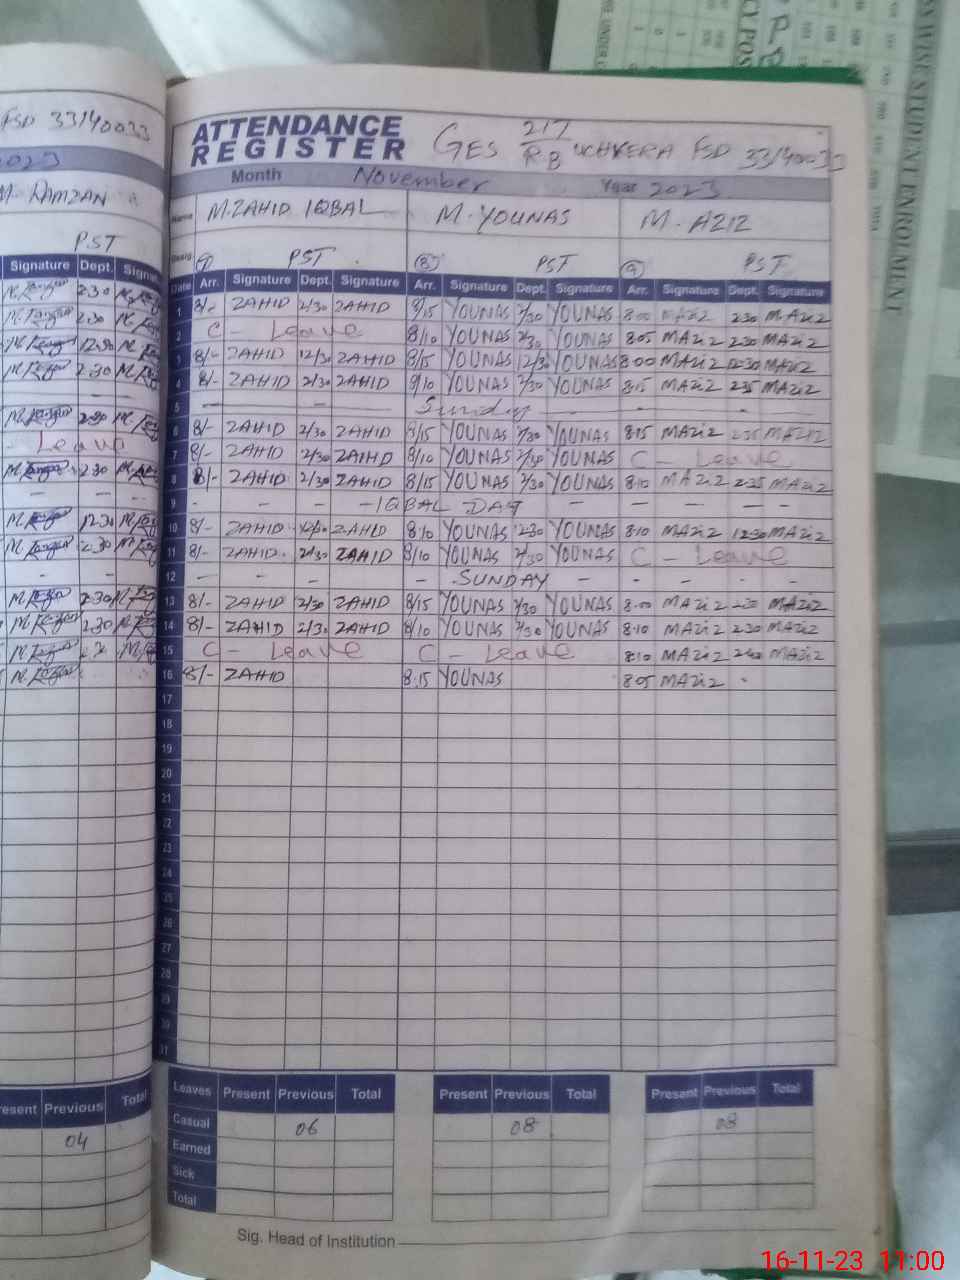 FSD 33140033
2023
M. RAMZAN
PST
Signature Dept. Signat
Leave
resent Previous Total
04
ATTENDANCE
REGISTER
GES 217 RB UCHKERA FSD 33140033
Month November Year 2023
Name M.ZAHID IQBAL M. YOUNAS M. AZIZ
Desig. 7 PST 8 PST 9 PST
Date Arr. Signature Dept. Signature Arr. Signature Dept. Signature Arr. Signature Dept. Signature
1 8/- ZAHID 2/30 ZAHID 8/15 YOUNAS 2/30 YOUNAS 8:00 MAZiZ 2:30 MAZiZ
2 C - Leave 8/10 YOUNAS 2/30 YOUNAS 8:05 MAZiZ 2:30 MAZiZ
3 8/- ZAHID 12/30 ZAHID 8/15 YOUNAS 12/30 YOUNAS 8:00 MAZiZ 12:30 MAZiZ
4 8/- ZAHID 2/30 ZAHID 8/10 YOUNAS 2/30 YOUNAS 8:15 MAZiZ 2:35 MAZiZ
5 — — Sunday — - - —
6 8/- ZAHID 2/30 ZAHID 8/15 YOUNAS 2/30 YOUNAS 8:15 MAZiZ 2:35 MAZIZ
7 8/- ZAHID 2/30 ZAIHD 8/10 YOUNAS 2/30 YOUNAS C - Leave
8 8/- ZAHID 2/30 ZAHID 8/15 YOUNAS 2/30 YOUNAS 8:10 MAZiZ 2:35 MAZiZ
9 - - - - IQBAL DAY - - - - - -
10 8/- ZAHID 12/30 ZAHID 8:10 YOUNAS 12:30 YOUNAS 8:10 MAZiZ 12:30 MAZiZ
11 8/- ZAHID 2/30 ZAHID 8/10 YOUNAS 2/30 YOUNAS C - Leave
12 - - - - SUNDAY - - - - -
13 8/- ZAHID 2/30 ZAHID 8/15 YOUNAS 2/30 YOUNAS 8:00 MAZiZ 2:30 MAZiZ
14 8/- ZAHID 2/30 ZAHID 8/10 YOUNAS 2/30 YOUNAS 8:10 MAZiZ 2:30 MAZiZ
15 C - Leave C - Leave 8:10 MAZiZ MAZiZ
16 8/- ZAHID 8:15 YOUNAS 8:05 MAZiZ
17
18
19
20
21
22
23
24
25
26
27
28
29
30
31
Leaves Present Previous Total Present Previous Total Present Previous Total
Casual 06 08 08
Earned
Sick
Total
Sig. Head of Institution
STUDENT ENROLMENT
16-11-23 11:00